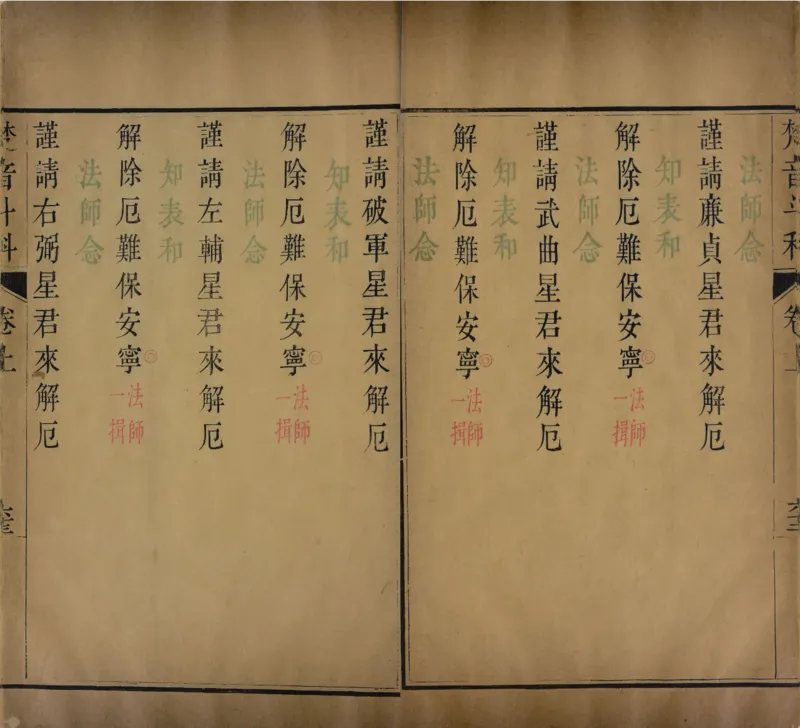 梵音斗科 卷上
法師念
謹請廉貞星君來解厄
知表和
解除厄難保安寧○法師一揖
法師念
謹請武曲星君來解厄
知表和
解除厄難保安寧○法師一揖
法師念
謹請破軍星君來解厄
知表和
解除厄難保安寧○法師一揖
法師念
謹請左輔星君來解厄
知表和
解除厄難保安寧○法師一揖
法師念
謹請右弼星君來解厄
梵音斗科 卷上